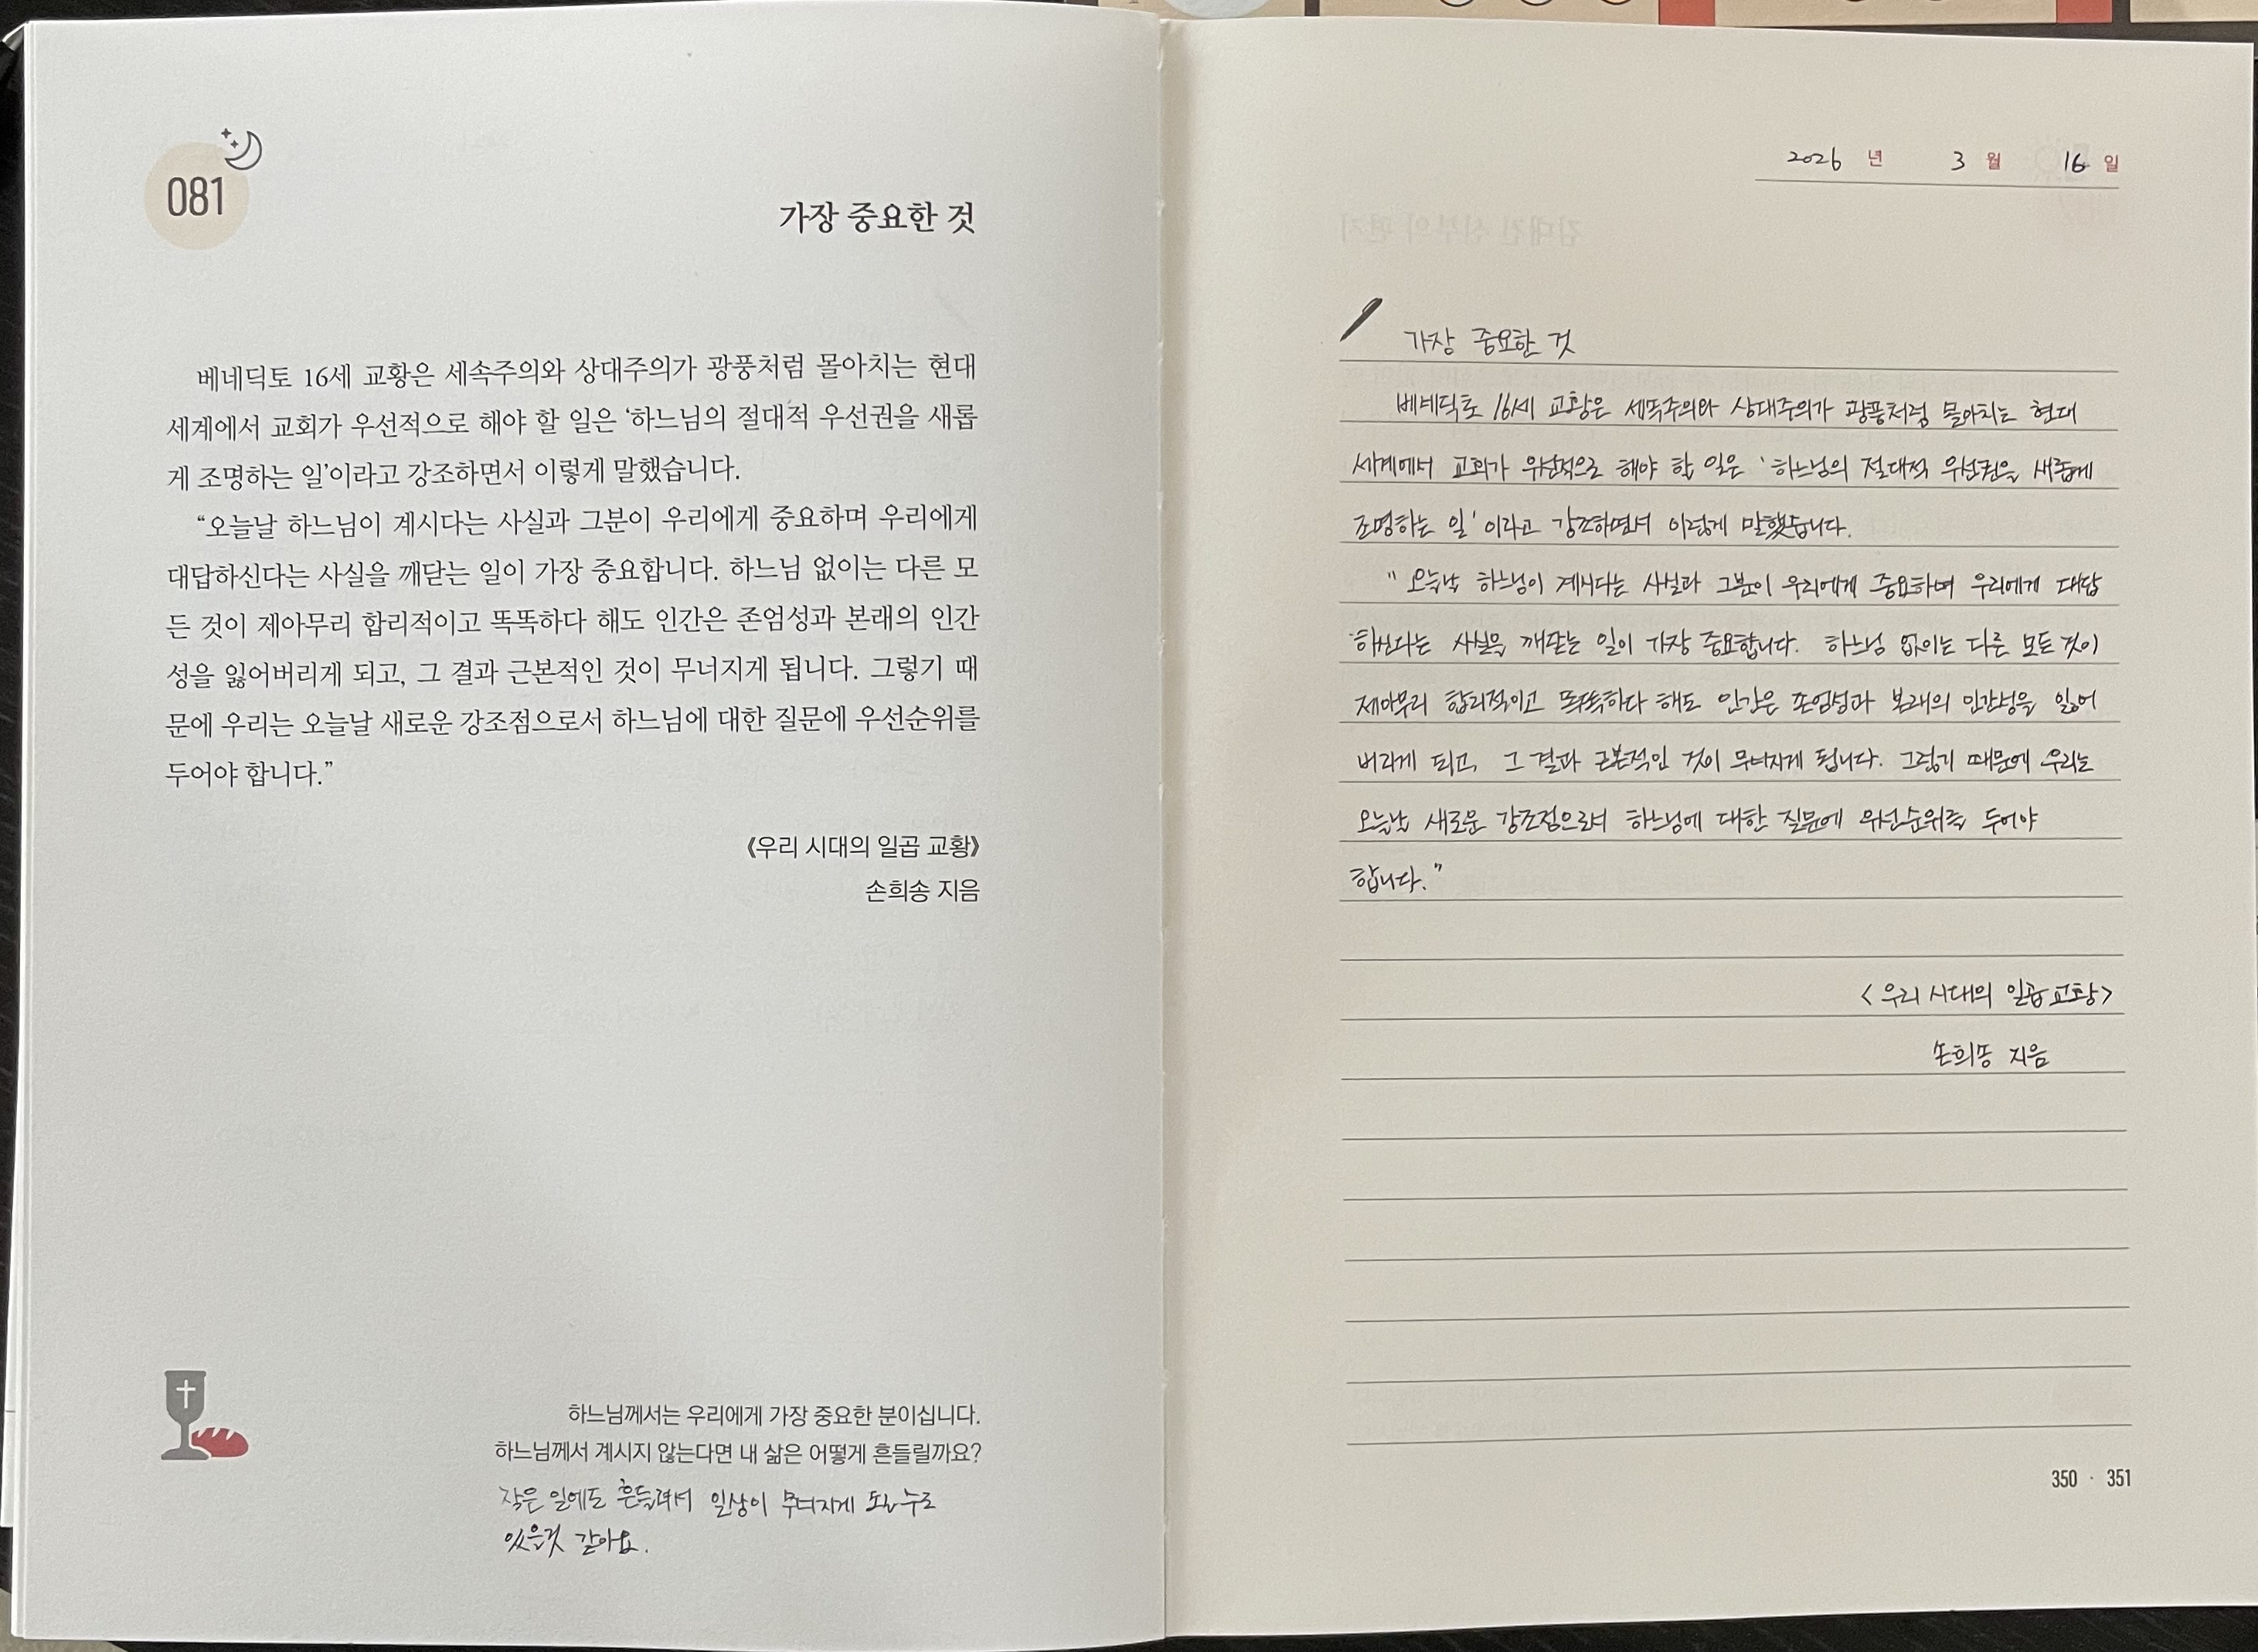 081
가장 중요한 것
베네딕토 16세 교황은 세속주의와 상대주의가 광풍처럼 몰아치는 현대
세계에서 교회가 우선적으로 해야 할 일은 ‘하느님의 절대적 우선권을 새롭
게 조명하는 일’이라고 강조하면서 이렇게 말했습니다.
“오늘날 하느님이 계시다는 사실과 그분이 우리에게 중요하며 우리에게
대답하신다는 사실을 깨닫는 일이 가장 중요합니다. 하느님 없이는 다른 모
든 것이 제아무리 합리적이고 똑똑하다 해도 인간은 존엄성과 본래의 인간
성을 잃어버리게 되고, 그 결과 근본적인 것이 무너지게 됩니다. 그렇기 때
문에 우리는 오늘날 새로운 강조점으로서 하느님에 대한 질문에 우선순위를
두어야 합니다.”
《우리 시대의 일곱 교황》
손희송 지음
하느님께서는 우리에게 가장 중요한 분이십니다.
하느님께서 계시지 않는다면 내 삶은 어떻게 흔들릴까요?
작은 일에도 흔들려서 일상이 무너지게 될 수도
있을것 같아요.
2026 년 3 월 16 일
가장 중요한 것
베네딕토 16세 교황은 세속주의와 상대주의가 광풍처럼 몰아치는 현대
세계에서 교회가 우선적으로 해야 할 일은 '하느님의 절대적 우선권을 새롭게
조명하는 일' 이라고 강조하면서 이렇게 말했습니다.
" 오늘날 하느님이 계시다는 사실과 그분이 우리에게 중요하며 우리에게 대답
하신다는 사실을 깨닫는 일이 가장 중요합니다. 하느님 없이는 다른 모든 것이
제아무리 합리적이고 똑똑하다 해도 인간은 존엄성과 본래의 인간성을 잃어
버리게 되고, 그 결과 근본적인 것이 무너지게 됩니다. 그렇기 때문에 우리는
오늘날 새로운 강조점으로서 하느님에 대한 질문에 우선순위를 두어야
합니다."
<우리 시대의 일곱 교황>
손희송 지음
350 · 351